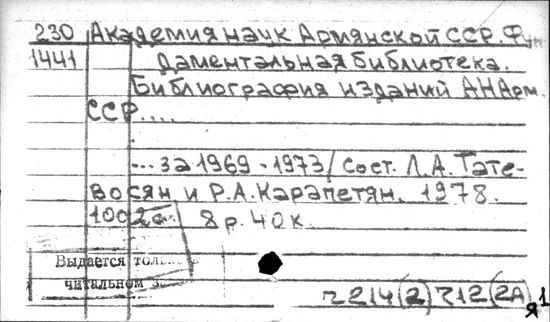 230 Академия наук Армянской ССР. Фун
1441 даментальная библиотека.
Библиография изданий АН Арм.
ССР....
... за 1969 - 1973 / Сост. Л.А. Тате-
восян и Р.А. Карапетян. 1978.
1002 8 р. 40 к.
Выдается только
читальном
2214(2) 712(2А)
Я1